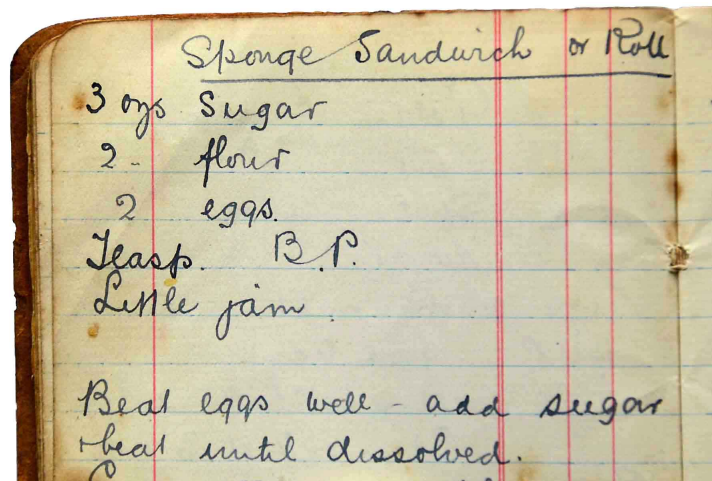 Sponge Sandwich or Roll
3 ozs Sugar
2 " flour
2 eggs.
Teasp. B.P.
Little jam
Beat eggs well - add sugar
+ beat until dissolved.